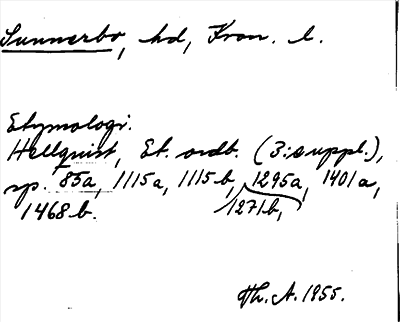 Sunnerbo, hd, Kron. l.
Etymologi.
Hellquist, Et. ordb. (3:e uppl.),
sp. 85a, 1115a, 1115b, 1295a, 1401a,
1468b. 1271b,
Th. A. 1955.